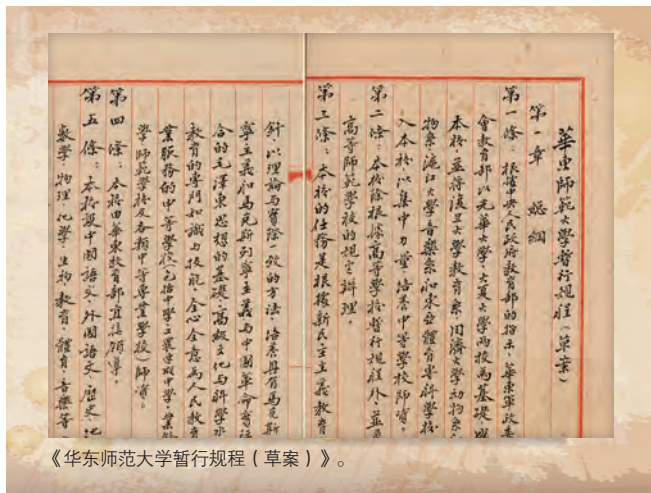 華東師範大學暫行規程(草案)
第一章 總綱
第一條:根據中央人民政府教育部的指示,華東軍政委
會教育部以光華大學、大夏大學兩校為基礎,成
本校,並將復旦大學教育系,同濟大學動物系
物系,滬江大學音樂系和東亞體育專科學校
入本校,以集中力量,培養中等學校師資。
第二條:本校除根據高等學校暫行規程外,並
高等師範學校的規定辦理。
第三條:本校的任務是根據新民主主義教育
針,以理論与實際一致的方法,培養具有馬克斯
寧主義和馬克斯列寧主義与中國革命實
合的毛澤東思想的基礎,高級文化与科學水
教育的專門知識与技能,全心全意為人民教育
業服務的中等學校(包括中學工農速成中學業餘
學師範學校及各類中等專業學校)師資。
第四條:本校由華東教育部直接領導。
第五條:本校設中國語文、外國語文、歷史、地
數學、物理、化學、生物、教育、體育、音樂等
《华东师范大学暂行规程(草案)》。